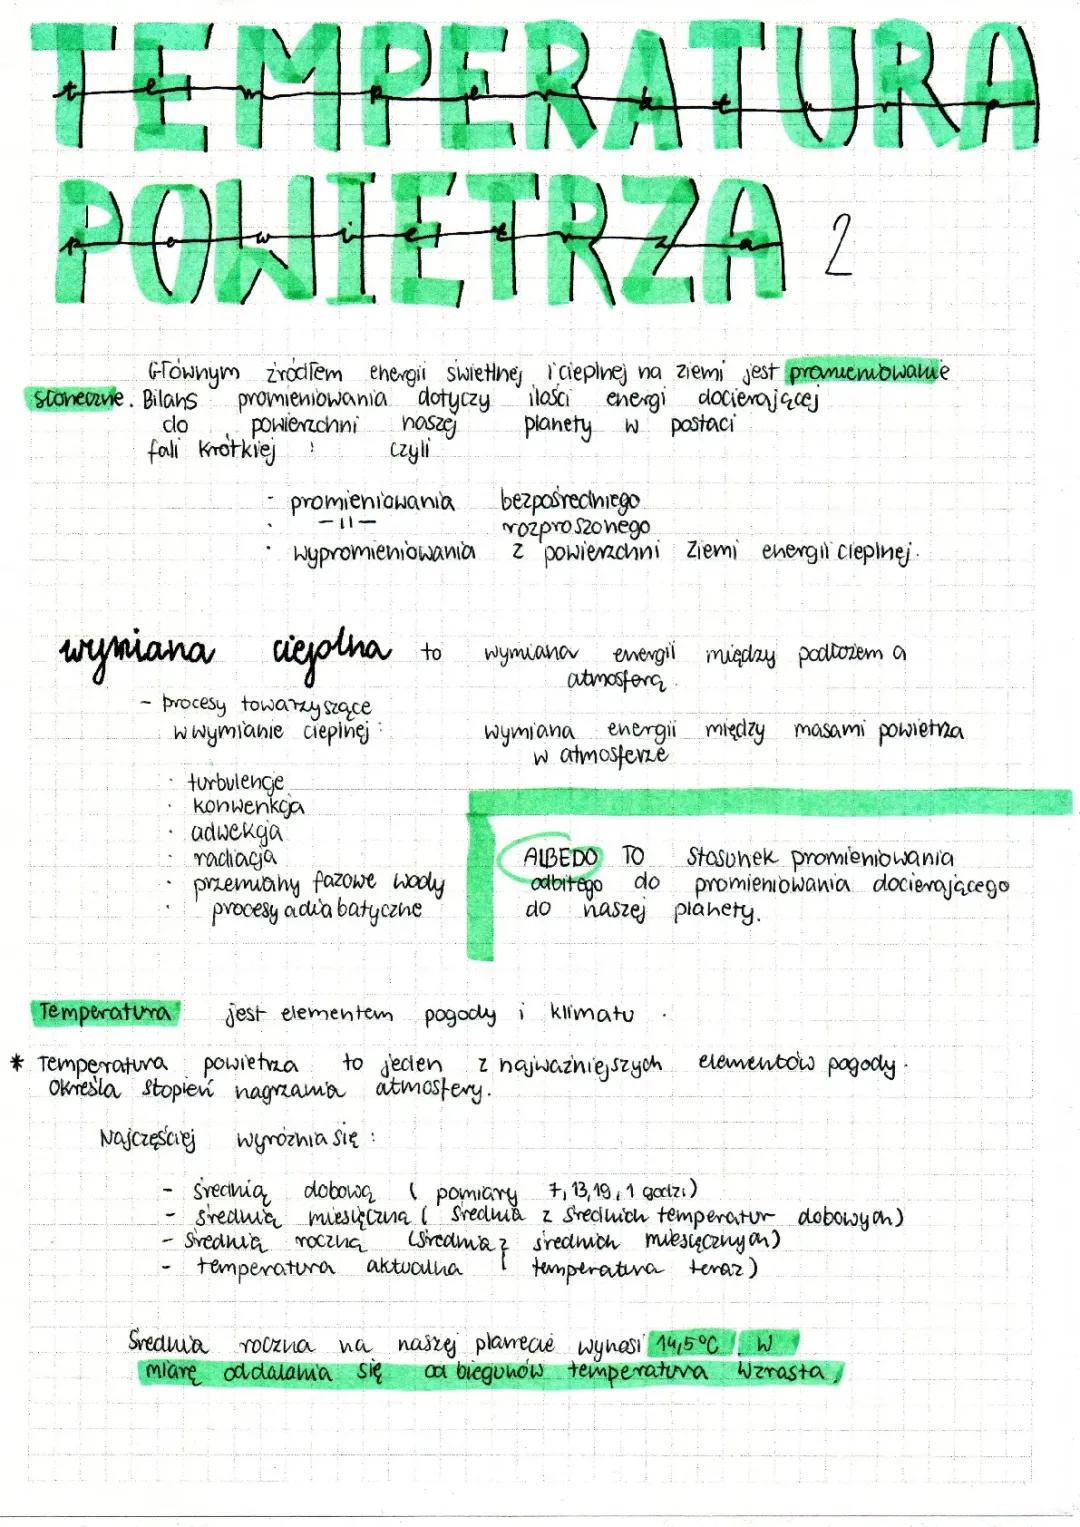 TEMPERATURA
temperatura
POWIETRZA 2
powietrza
Głównym źródłem energii świetlnej i cieplnej na ziemi jest promieniowanie
słoneczne. Bilans promieniowania dotyczy ilości energi docierającej
do powierzchni naszej planety w postaci
fali krótkiej : czyli
- promieniowania bezpośredniego
· -11- rozproszonego
· wypromieniowania z powierzchni Ziemi energii cieplnej.
wymiana cieplna to wymiana energii między podłożem a
atmosferą.
- procesy towarzyszące
w wymianie cieplnej:
wymiana energii między masami powietrza
w atmosferze
· turbulencje
· konwenkcja
· adwekcja
· radiacja
· przemiany fazowe wody
· procesy adiabatyczne
ALBEDO TO stosunek promieniowania
odbitego do promieniowania docierającego
do naszej planety.
Temperatura jest elementem pogody i klimatu.
* Temperatura powietrza to jeden z najważniejszych elementów pogody.
Określa stopień nagrzania atmosfery.
Najczęściej wyróżnia się:
- średnią dobową (pomiary 7, 13, 19, 1 godz.)
- średnią miesięczną (średnia z średnich temperatur dobowych)
- średnią roczną (średnia z średnich miesięcznych)
- temperatura aktualna (temperatura teraz)
Średnia roczna na naszej planecie wynosi 14,5°C. W
miarę oddalania się od biegunów temperatura wzrasta.